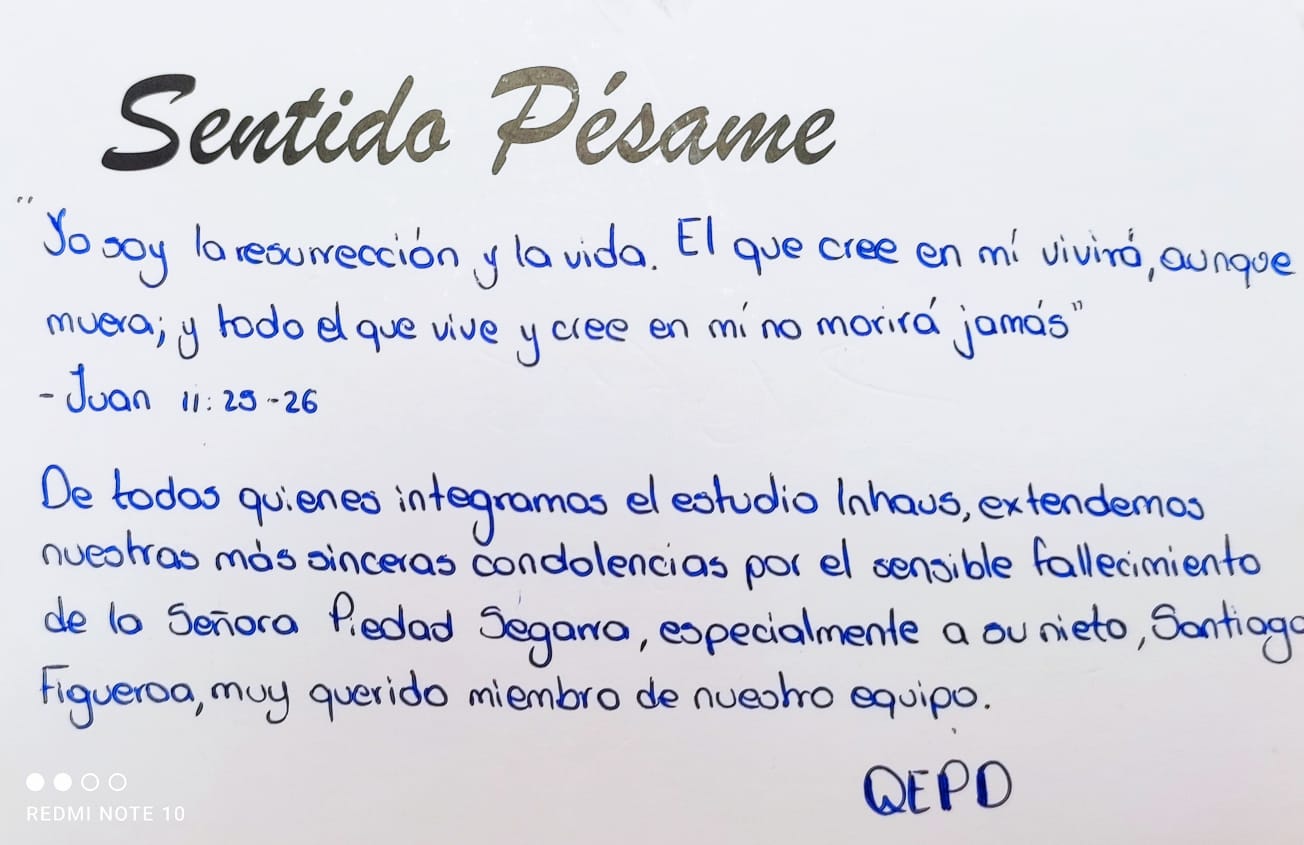 Sentido Pésame
"Yo soy la resurrección y la vida. El que cree en mí vivirá, aunque
muera; y todo el que vive y cree en mí no morirá jamás"
- Juan 11:25-26
De todos quienes integramos el estudio Inhaus, extendemos
nuestras más sinceras condolencias por el sensible fallecimiento
de la Señora Piedad Segarra, especialmente a su nieto, Santiago
Figueroa, muy querido miembro de nuestro equipo.
QEPD
REDMI NOTE 10